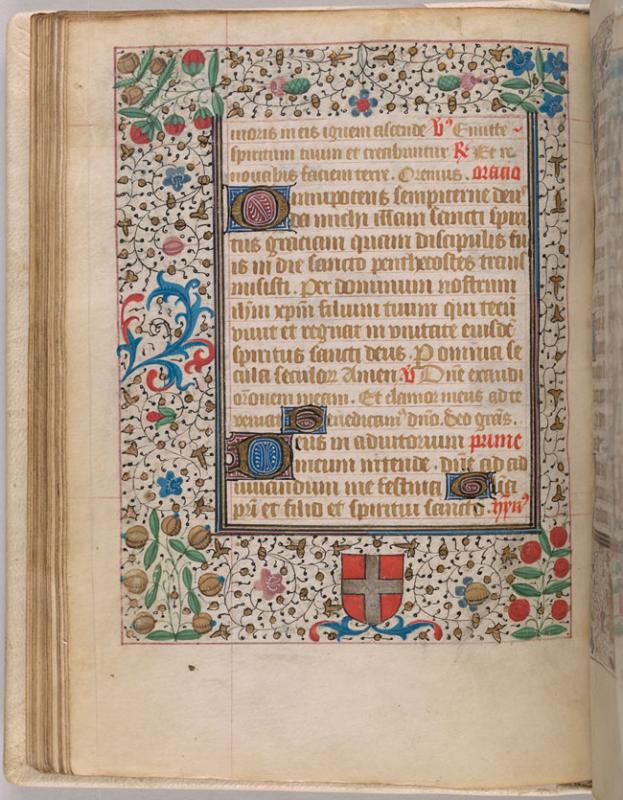 moris in eis ignem ascende ℣ Emitte
spiritum tuum et creabuntur ℟ Et re
novabis faciem terre. Oremus. oracio
Omnipotens sempiterne deus
da michi illam sancti spiri
tus graciam quam discipulis tu
is in die sancto penthecostes trans
misisti. Per dominum nostrum
ihm xpm filium tuum qui tecu
vivit et regnat in unitate eiusde
spiritus sancti deus. Per omnia se
cula seculor Amen. ℣ Dne exaudi
oronem meam. Et clamor meus ad te
veniat Benedicam dno. Deo gras.
Deus in adiutorium prime
meum intende. dne ad ad
iuvandum me festina Glia
pri et filio et spiritui sancto.